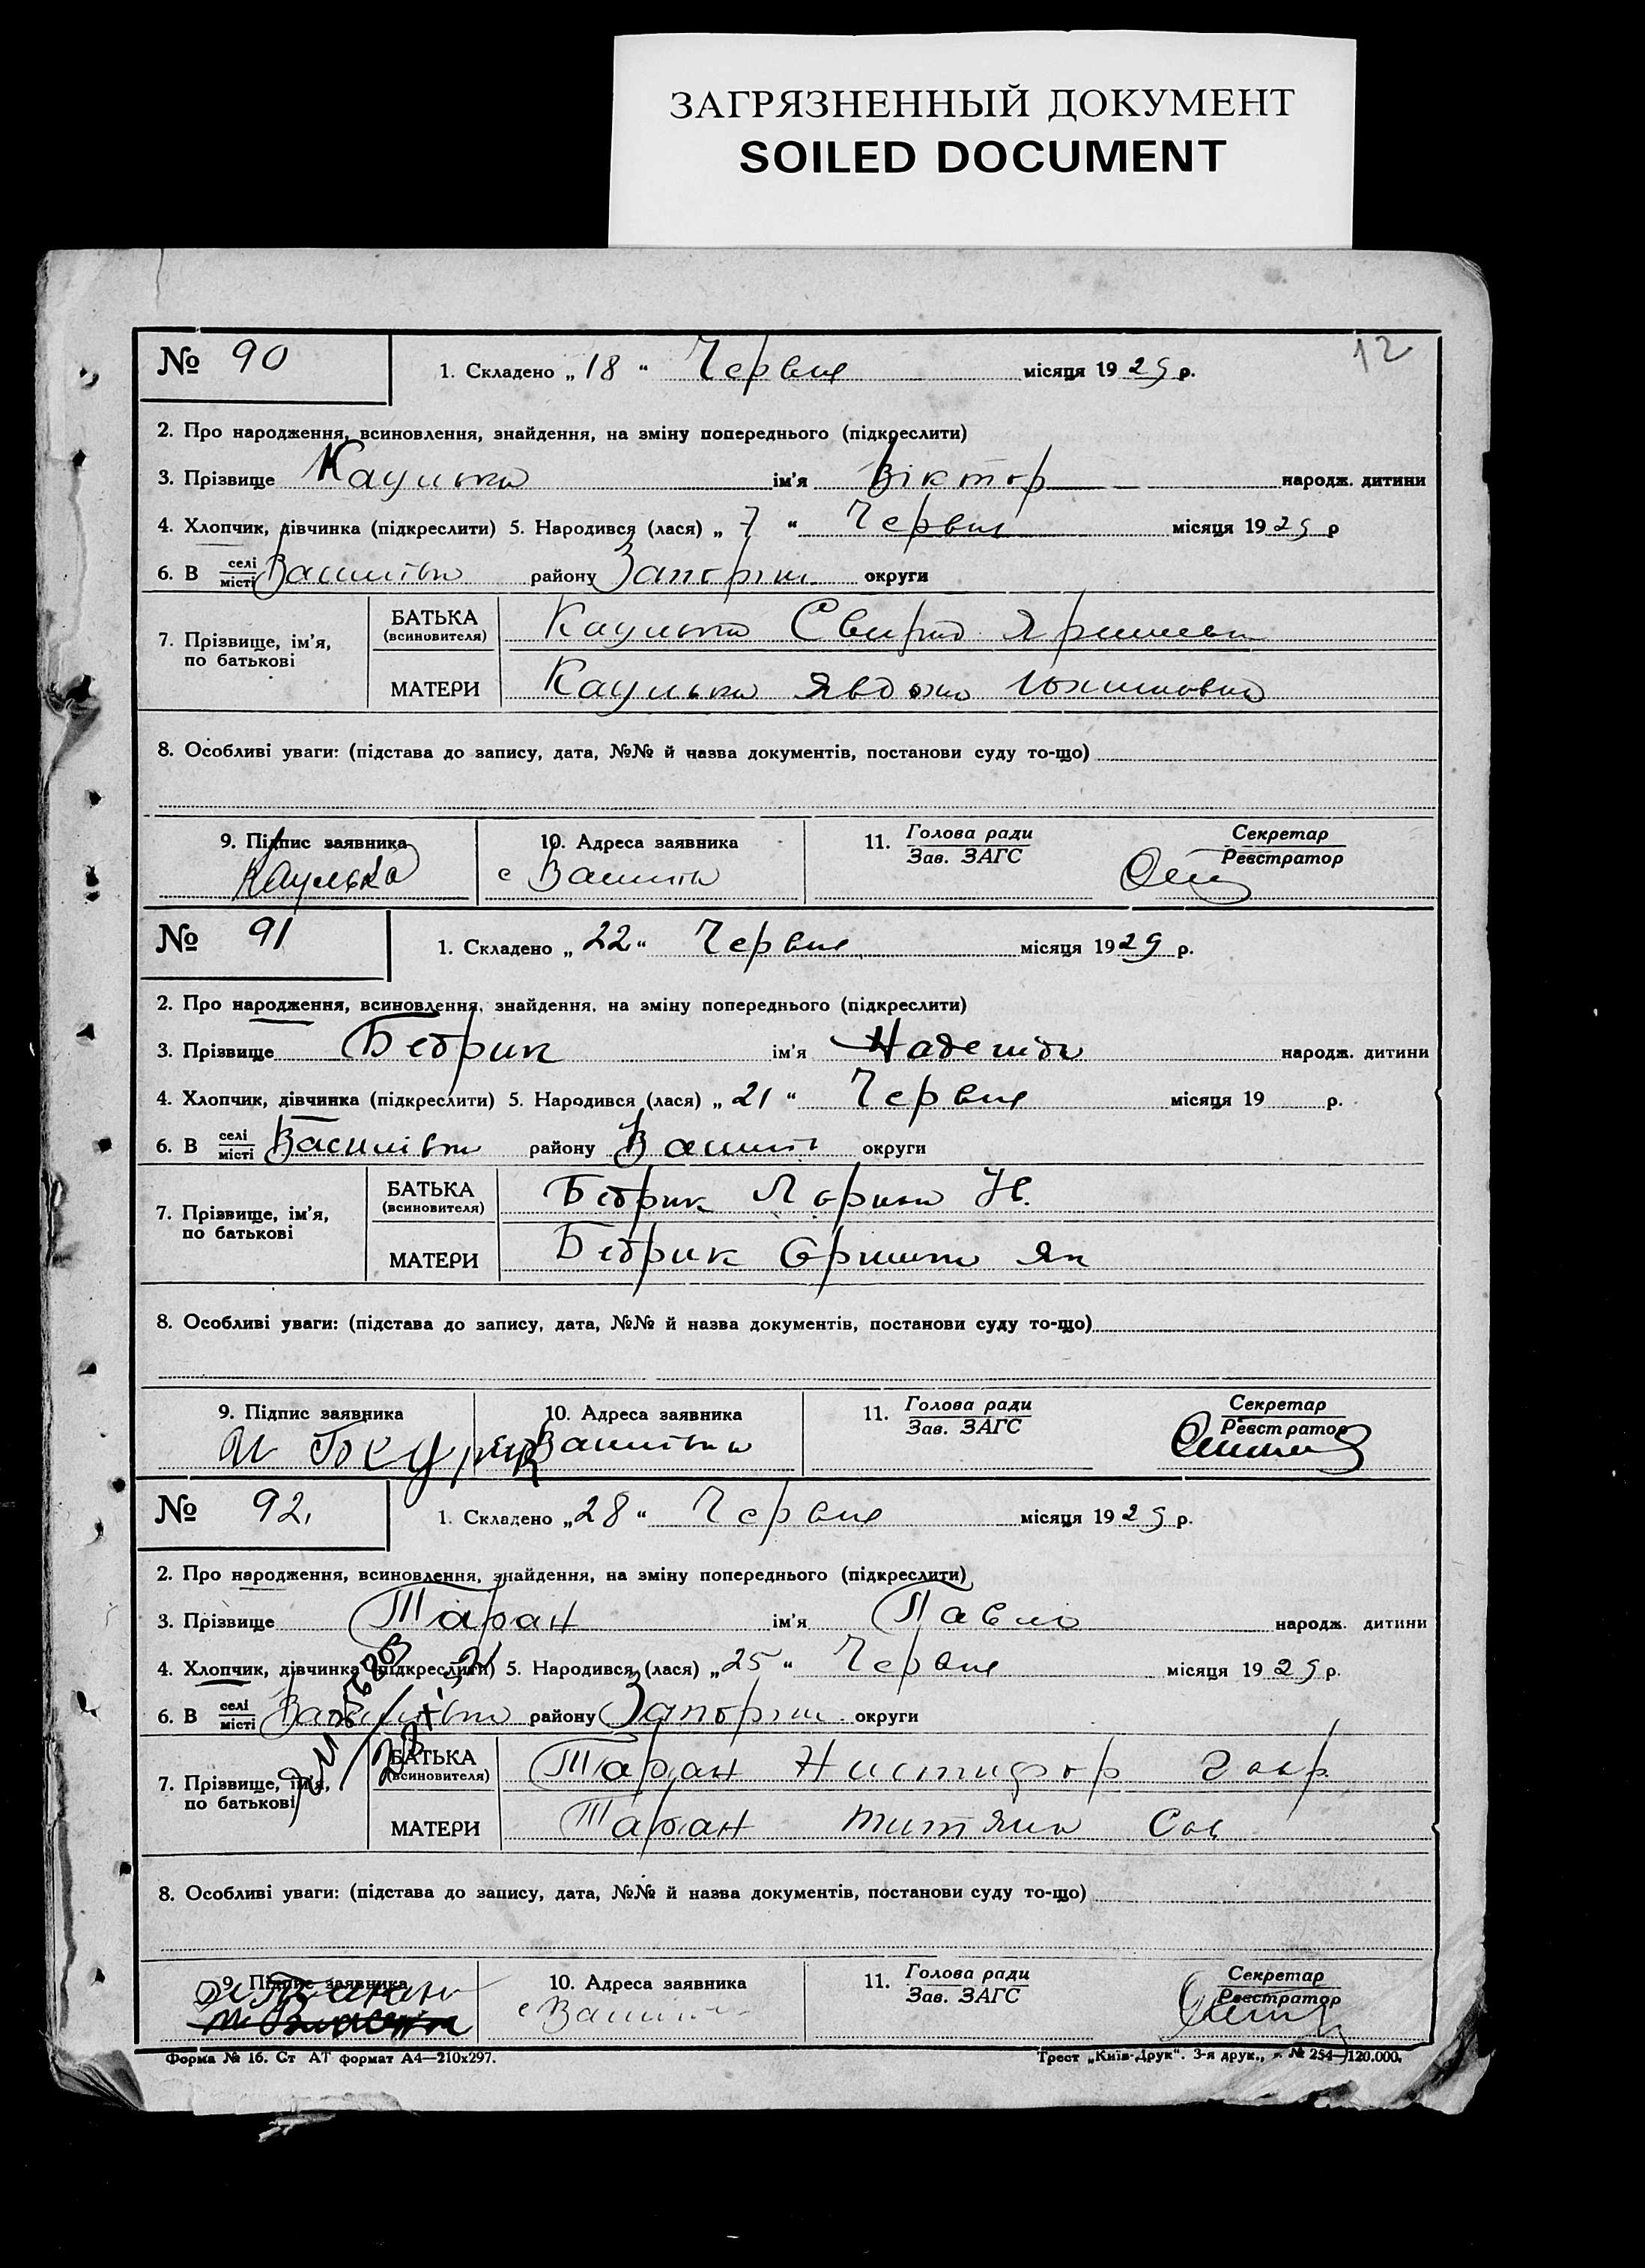 ЗАГРЯЗНЕННЫЙ ДОКУМЕНТ
SOILED DOCUMENT
12
№ 90 1. Складено „ 18 “ Червня місяця 1929 р.
2. Про народження, всиновлення, знайдення, на зміну попереднього (підкреслити)
3. Прізвище Каулько ім'я Віктор народж. дитини
4. Хлопчик, дівчинка (підкреслити) 5. Народився (лася) „ 7 “ Червня місяця 1929 р
6. В селі місті Василівка району Запоріж. округи
7. Прізвище, ім'я, по батькові
БАТЬКА (всиновителя) Каулько Свирид
МАТЕРИ Каулько Явдоха Юхимовна
8. Особливі уваги: (підстава до запису, дата, №№ й назва документів, постанови суду то-що)
9. Підпис заявника 10. Адреса заявника 11. Голова ради Зав. ЗАГС Секретар Реєстратор
Каулько с
№ 91 1. Складено „ 22 “ Червня місяця 1929 р.
2. Про народження, всиновлення, знайдення, на зміну попереднього (підкреслити)
3. Прізвище Бедрик ім'я Надежда народж. дитини
4. Хлопчик, дівчинка (підкреслити) 5. Народився (лася) „ 21 “ Червня місяця 19 р.
6. В селі місті Василівка району округи
7. Прізвище, ім'я, по батькові
БАТЬКА (всиновителя) Бедрик Н.
МАТЕРИ Бедрик Як
8. Особливі уваги: (підстава до запису, дата, №№ й назва документів, постанови суду то-що)
9. Підпис заявника 10. Адреса заявника 11. Голова ради Зав. ЗАГС Секретар Реєстратор
Василівка
№ 92. 1. Складено „ 28 “ Червня місяця 1929 р.
2. Про народження, всиновлення, знайдення, на зміну попереднього (підкреслити)
3. Прізвище Таран ім'я Павло народж. дитини
4. Хлопчик, дівчинка (підкреслити) 5. Народився (лася) „ 25 “ Червня місяця 1929 р.
6. В селі місті Василівка району Запоріж. округи
7. Прізвище, ім'я, по батькові
БАТЬКА (всиновителя) Таран
МАТЕРИ Таран Титяна Сав
8. Особливі уваги: (підстава до запису, дата, №№ й назва документів, постанови суду то-що)
9. Підпис заявника 10. Адреса заявника 11. Голова ради Зав. ЗАГС Секретар Реєстратор
Форма № 16. Ст АТ формат А4—210х297. Трест „Київ-Друк“. 3-я друк., № 254—120.000.